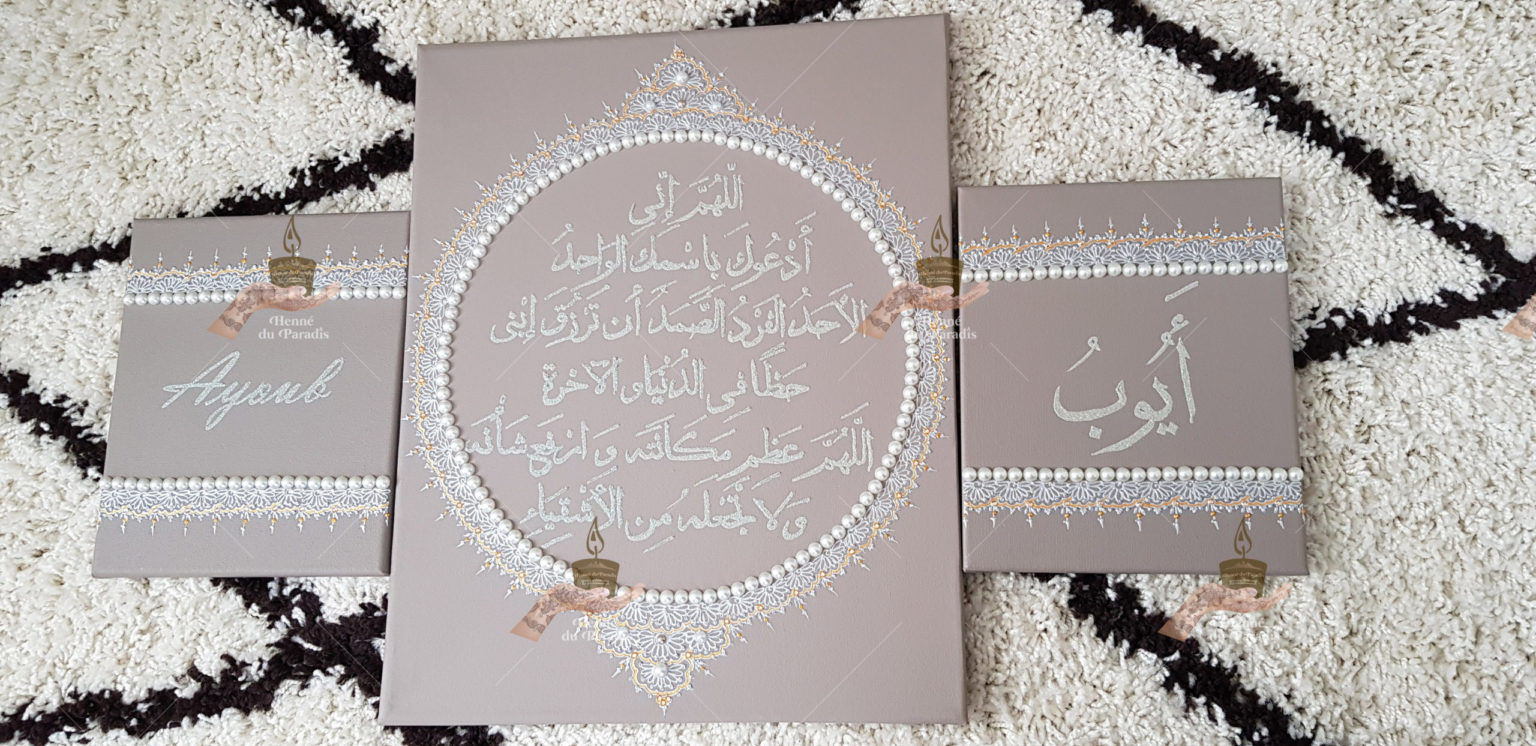 Ayoub
اللّهُمَّ إِنِّي
أَدْعُوكَ بِاسْمِكَ الوَاحِدُ
الأَحَدُ الفَرْدُ الصَّمَدَ أَن تَرْزُقَ إبْنِى
حَظًّا فِي الدُنْيَا وَ الآخرة
اللّهُمَّ عَظِّم مَكَانَتَه وَ ارْفَع شَأْنَه
وَ لَا تَجْعَلْه مِنَ الأَشْقِيَاءِ
أَيُّوبُ
Henné
du Paradis